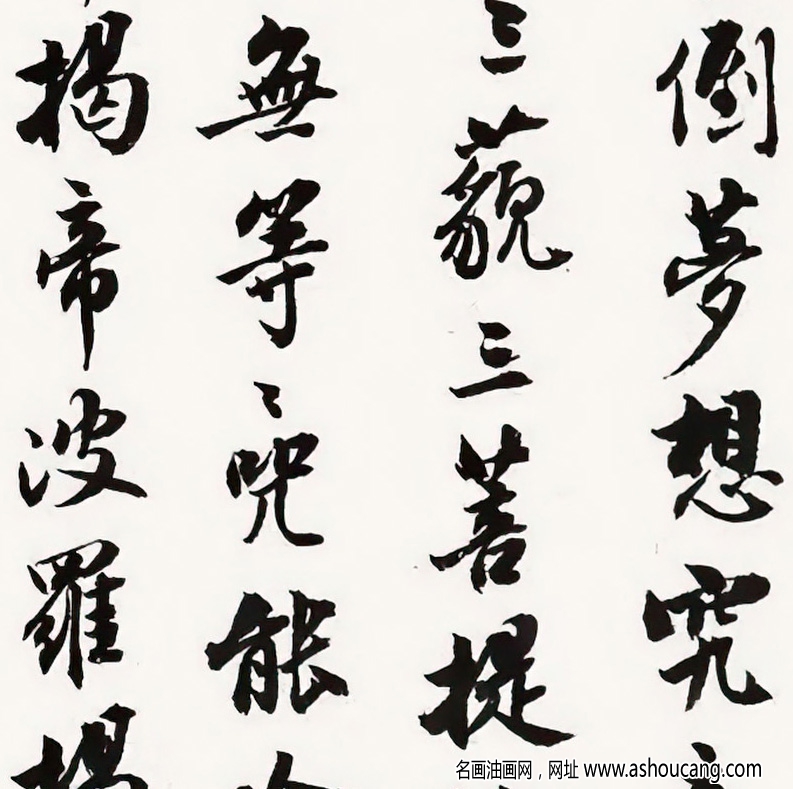 倒夢想究
三藐三菩提
無等〻咒能
揭帝波羅揭
名画油画网，网址 www.ashoucang.com